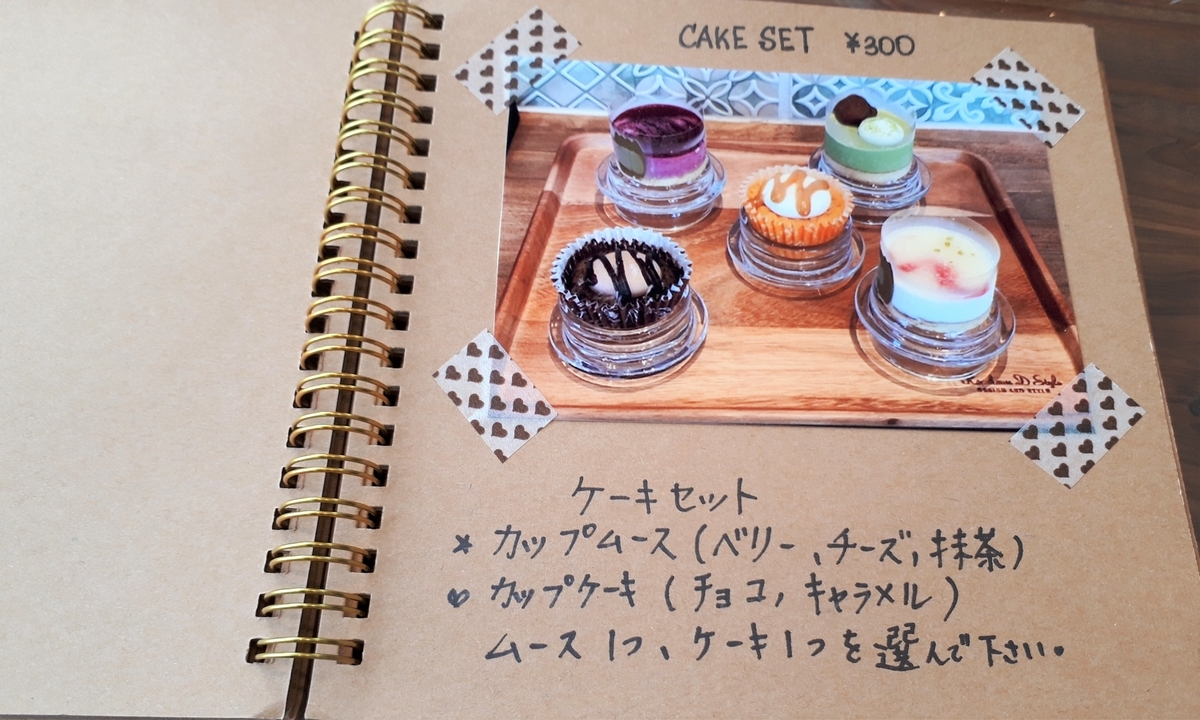 CAKE SET ¥300
ケーキセット
★ カップムース (ベリー、チーズ, 抹茶)
♥ カップケーキ ( チョコ, キャラメル )
ムース1つ、ケーキ1つを選んで下さい。